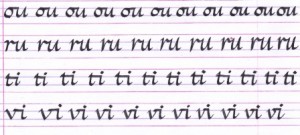 ou ou ou ou ou ou ou ou ou ou ou
ru ru ru ru ru ru ru ru ru ru
ti ti ti ti ti ti ti ti ti ti ti
vi vi vi vi vi vi vi vi vi vi vi